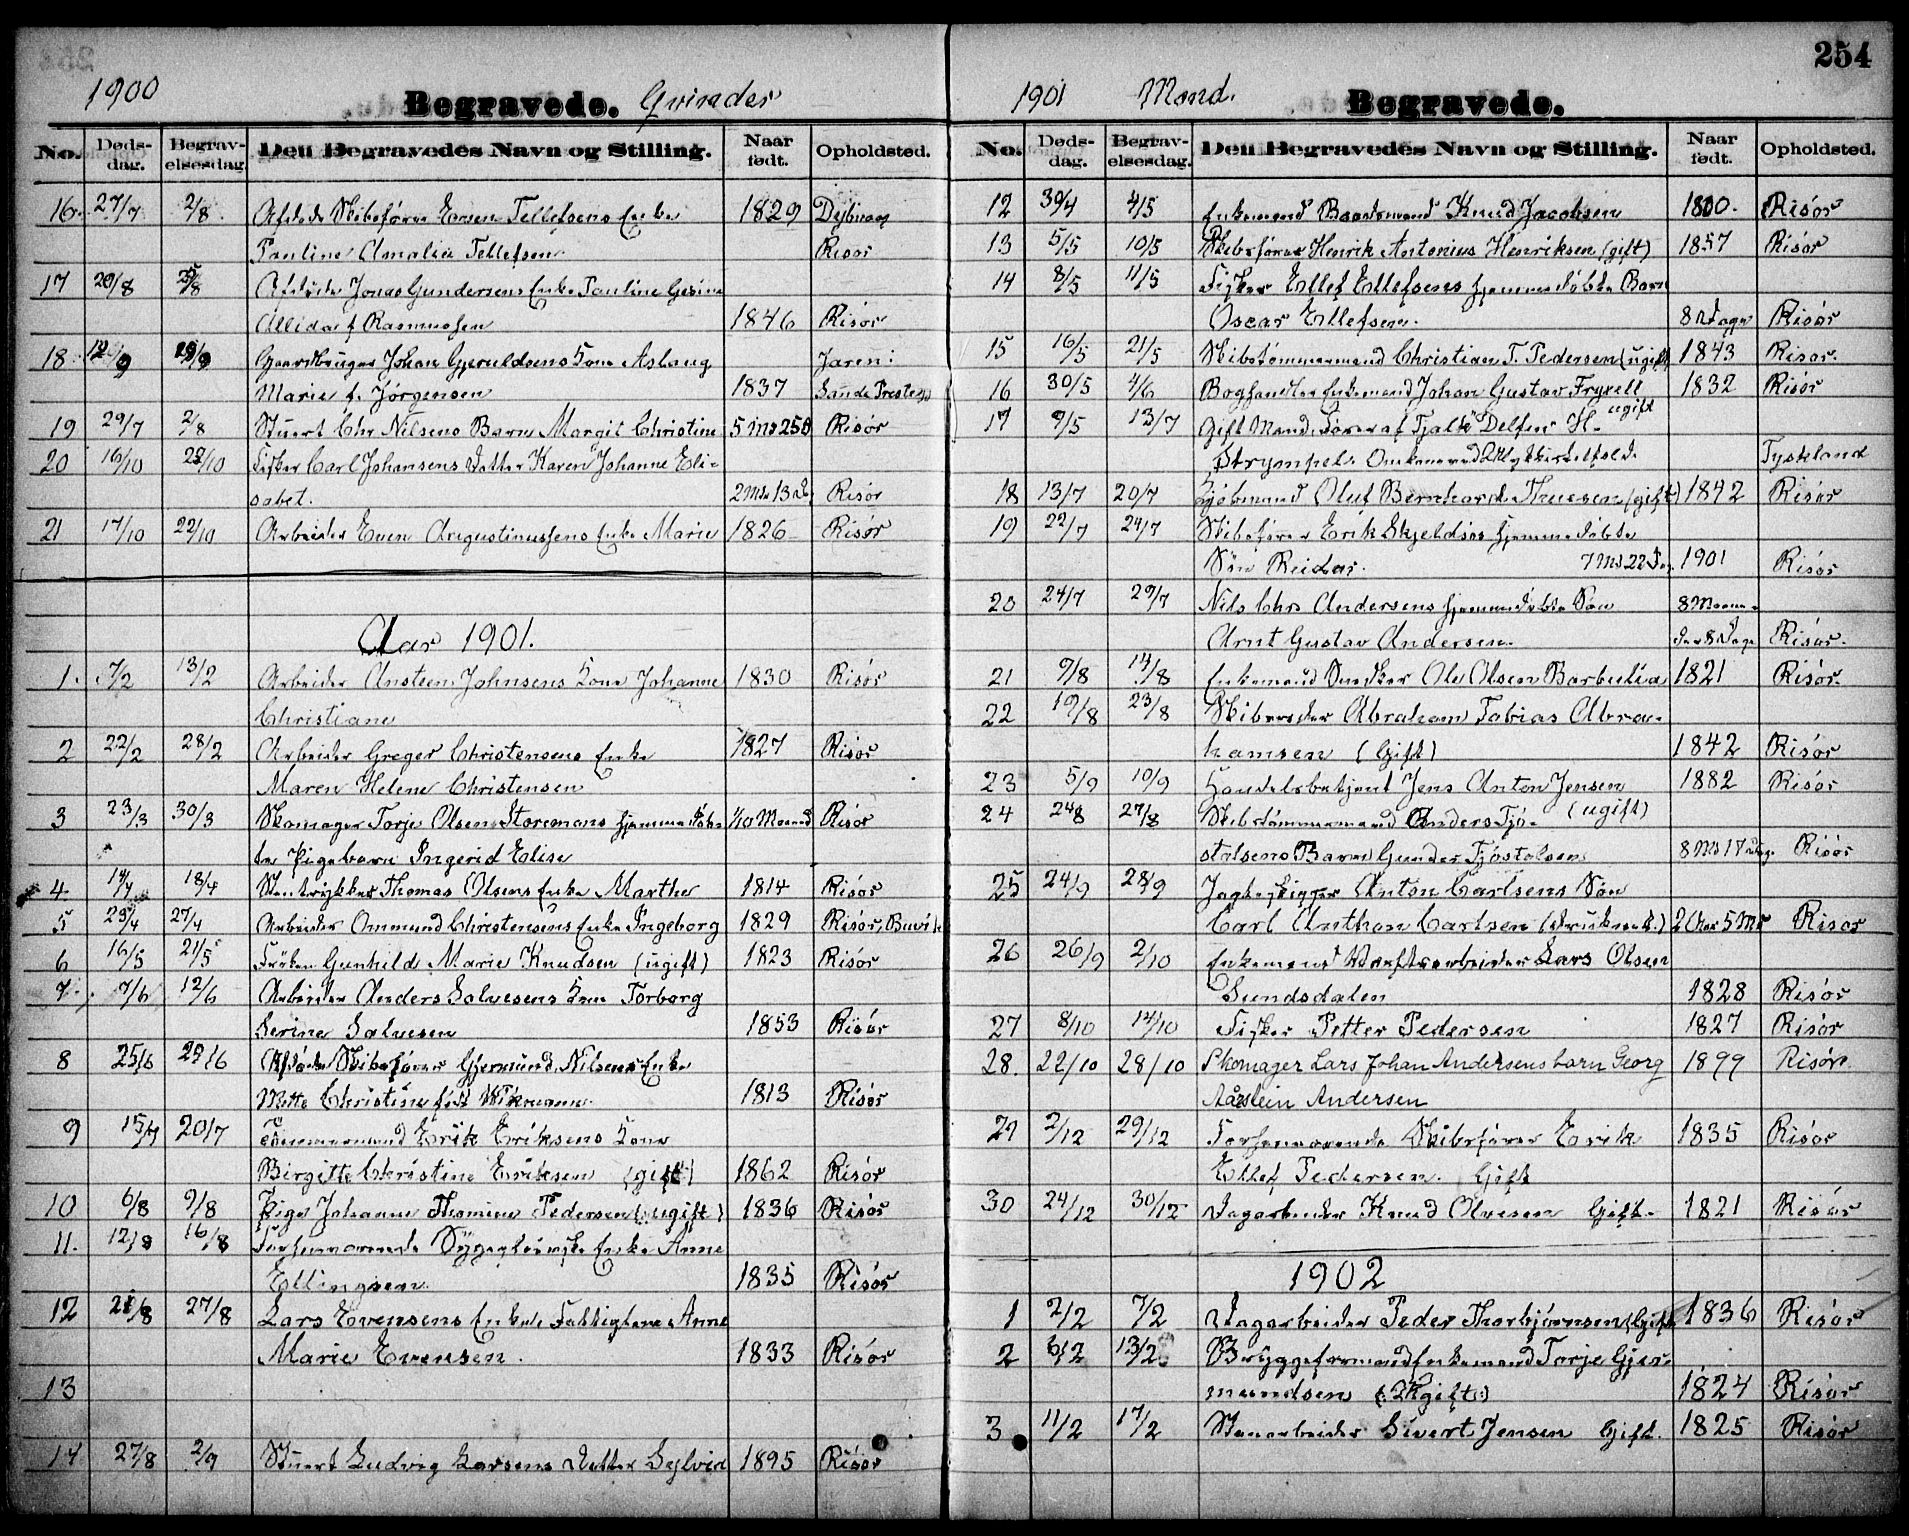 254
1900 Begravede. Qvinder
No. Døds-dag. Begrav-elsesdag. Den Begravedes Navn og Stilling. Naar født. Opholdsted.
16. 27/7 2/8. Afdøde Skibsfører Even Tellefsens Enke 1829 Dybvag
Pauline Amalie Tellefsen Risør
17 20/8 25/8 Afdøde Jonas Gundersens Enke Pauline Gesine
Allida f Rasmussen 1846 Risør
18. 12/9 19/9 Gaardbruger Johan Gjeruldsens Kone Aslaug Jaren:
Marie f. Jørgensen 1837 Sande
19 29/7 2/8 Stuert Chr Nilsens Barn Margit Christine 5 Md 25 D Risør
20 16/10 23/10 Fisker Carl Johansens Datter Karen Johanne Eli-
sabet. 2 Md 13 D. Risør
21 17/10 22/10 Arbeider Even Augustinussens Enke Marie 1826 Risør
Aar 1901.
1. 7/2 13/2 Arbeider Ansteen Johnsens Kone Johanne 1830 Risør
Christiane
2 22/2 28/2 Arbeider Greger Christensens Enke 1827 Risør
Maren Helene Christensen
3 23/3 30/3 Skomager Torje Olsen Storemans hjemmedøb- 1/10 Maaned Risør
te Pigebarn Ingerid Elise
4. 14/4 18/4 Stentrykker Thomas Olsens Enke Marthe 1814 Risør
5 23/4 27/4 Arbeider Ommund Christensens Enke Ingeborg 1829 Risør,
6 16/5 21/5 Frøken Gunhild Marie Knudsen (ugift) 1823 Risør
7. 7/6 12/6 Arbeider Anders Salvesens Kone Torborg
Serine Salvesen 1853 Risør
8 25/6 29/6 Afdøde Skibsfører Gjermund Nilsens Enke
Mette Christine født 1813 Risør
9 15/7 20/7 Tømmermand Erik Eriksens Kone
Birgitte Christine Eriksen (gift) 1862 Risør
10 6/8 9/8 Pige Johanne Thomine Pedersen (ugift) 1836 Risør
11. 12/8 16/8 Forhenværende Enke Anne
Ellingsen. 1835 Risør
12 21/8 27/8 Lars Evensens Enke Fattiglem Anne
Marie Evensen. 1833 Risør
13
14 27/8 2/9 Stuert Ludvig Larsens Datter Sylvia 1895 Risør
1901 Mænd. Begravede.
No. Døds-dag. Begrav-elsesdag. Den Begravedes Navn og Stilling. Naar født. Opholdsted.
12 30/4 4/5 Enkemand Baadsmand Knud Jacobsen Risør
13 5/5 10/5 Skibsfører Henrik Antonius Henriksen (gift) 1857 Risør
14 8/5 11/5 Fisker Ellef Ellefsens hjemmedøbte Barn
Oscar Ellefsen. 8 Dage Risør
15 16/5 21/5 Skibstømmermand Christian T. Pedersen (ugift) 1843 Risør.
16 30/5 4/6 Boghandler Enkemand Johan Gustav Fryxell 1832 Risør
17 9/5 13/7 Gift Mand. Fører af Tjalk "Delfin" H. ugift
Strympel. Omkommed Tyskland
18 13/7 20/7 Sjømand Oluf Bernhard Thuesen (gift) 1842 Risør
19 22/7 24/7 Skibsfører Erik Skjeldsøs hjemmedøbte
Søn Reidar. 7 Md 22 Dag. 1901 Risør
20 24/7 29/7 Nils Chr Andersens hjemmedøbte Søn 8 Maane-
Arnt Gustav Andersen. der 8 Dage Risør.
21 9/8 14/8 Enkemand Snedker Ole Olsen Barbulia 1821 Risør.
22 19/8 23/8 Skibsreder Abraham Tobias Abra-
hamsen (Gift) 1842 Risør
23 5/9 10/9 Handelsbetjent Jens Anton Jensen 1882 Risør
24 24/8 27/8 Skibstømmermand Anders Tjø- (ugift)
stolsens Barn Gunder Tjøstolsen 8 Md 17 Dag. Risør
25 24/9 28/9 Jagteskipper Anton Carlsens Søn
Carl Anthon Carlsen (Druknet.) 2 Aar 5 Md Risør
26 26/9 2/10 Enkemand Værftsarbeider Lars Olsen
Sundsdalen 1828 Risør
27 8/10 14/10 Fisker Petter Pedersen 1827 Risør
28. 22/10 28/10 Skomager Lars Johan Andersens barn Georg 1899 Risør.
Aarstein Andersen
29 2/12 29/12 Forhenværende Skibsfører Eerik 1835 Risør
Ellef Pedersen. Gift
30 24/12 30/12 Dagarbeider Knud Olvesen Gift. 1821 Risør
1902
1 2/2 7/2 Dagarbeider Peder Thorbjørnsen (Gift 1836 Risør
2 6/2 13/2 Bryggeformand Enkemand Torje Gjer-
mundsen (gift) 1824 Risør
3 11/2 17/2 Stenarbeider Sivert Jensen Gift. 1825 Risør